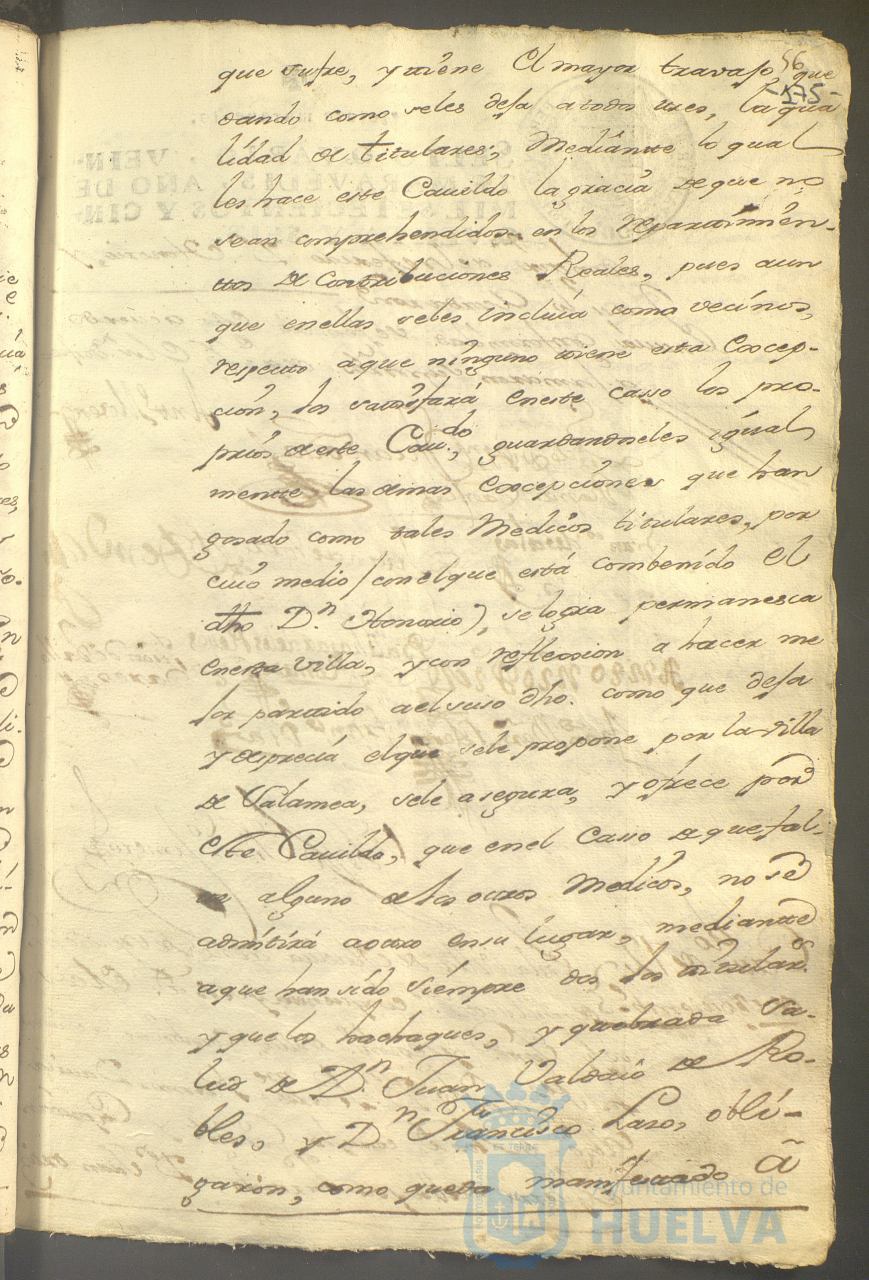 56
175
que sufre, y tiene el mayor travajo, que
dando como seles deja a todos tres, la qua
lidad de titulares; Mediante lo qual
les hace este Cavildo la gracia de que no
sean comprehendidos en los repartimien-
ttos de Contribuciones Reales, pues aun
que en ellas seles incluia como vecinos,
respecto a que ninguno tiene esta Excep-
cion, los satisfará en este casso los pro-
prios de este Cavdo, guardandoseles igual
mente las demas Excepciones que han
gosado como tales Medicos titulares, por
cuio medio / con el que está combenido el
dho Dn Honorio), se logra permanesca
en esta villa, y con reflecsion a hacer me
jor partido a el suso dho. como que deja
y desprecia el que sele propone por la villa
de Salamea, sele asegura, y ofrece por
este Cavildo, que en el Casso de que fal-
te alguno de los otros Medicos, no se
admitirá a otro en su lugar, mediante
a que han sido siempre dos los titulars.
y que los hachaques, y quebrada sa-
lud de Dn Juan Valdaio de Ro-
bles, y Dn Francisco Laso, obli-
garon, como queda manifestado a
Ayuntamiento de
HUELVA